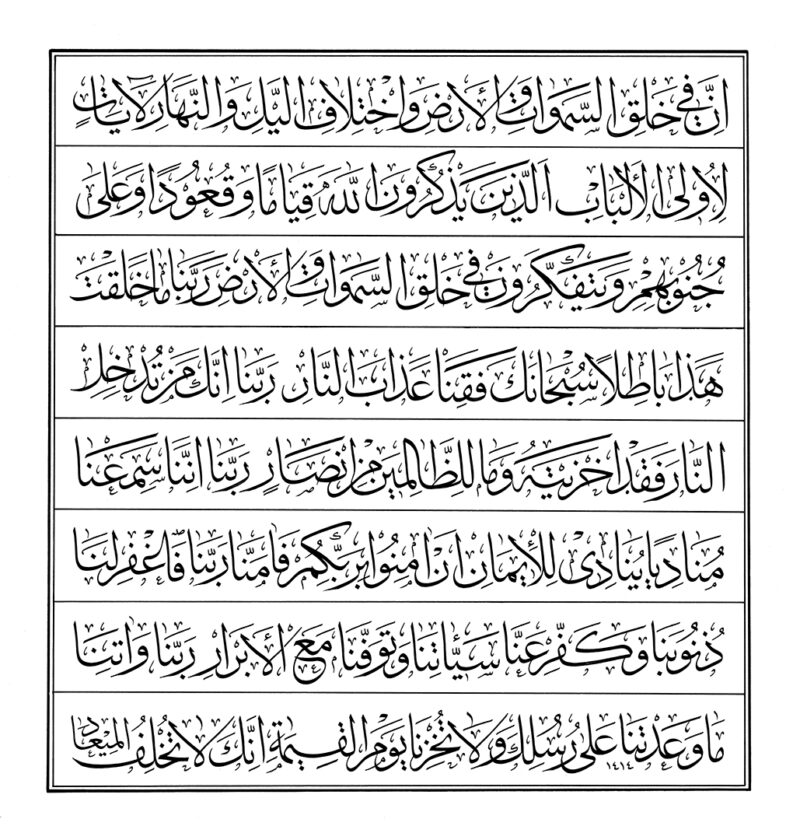 اِنَّ فِي خَلْقِ السَّمٰوَاتِ وَالْاَرْضِ وَاخْتِلَافِ الَّيْلِ وَالنَّهَارِ لَاٰيَاتٍ
لِاُولِى الْاَلْبَابِ اَلَّذِينَ يَذْكُرُونَ اللّٰهَ قِيَامًا وَقُعُودًا وَعَلٰى
جُنُوبِهِمْ وَيَتَفَكَّرُونَ فِي خَلْقِ السَّمٰوَاتِ وَالْاَرْضِ رَبَّنَا مَا خَلَقْتَ
هٰذَا بَاطِلًا سُبْحَانَكَ فَقِنَا عَذَابَ النَّارِ رَبَّنَا اِنَّكَ مَنْ تُدْخِلِ
النَّارَ فَقَدْ اَخْزَيْتَهُ وَمَا لِلظَّالِمِينَ مِنْ اَنْصَارٍ رَبَّنَا اِنَّنَا سَمِعْنَا
مُنَادِيًا يُنَادِى لِلْاِيمَانِ اَنْ اٰمِنُوا بِرَبِّكُمْ فَاٰمَنَّا رَبَّنَا فَاغْفِرْ لَنَا
ذُنُوبَنَا وَكَفِّرْ عَنَّا سَيِّاٰتِنَا وَتَوَفَّنَا مَعَ الْاَبْرَارِ رَبَّنَا وَاٰتِنَا
مَا وَعَدْتَنَا عَلٰى رُسُلِكَ وَلَا تُخْزِنَا يَوْمَ الْقِيٰمَةِ اِنَّكَ لَا تُخْلِفُ الْمِيعَادَ
١٤١٤